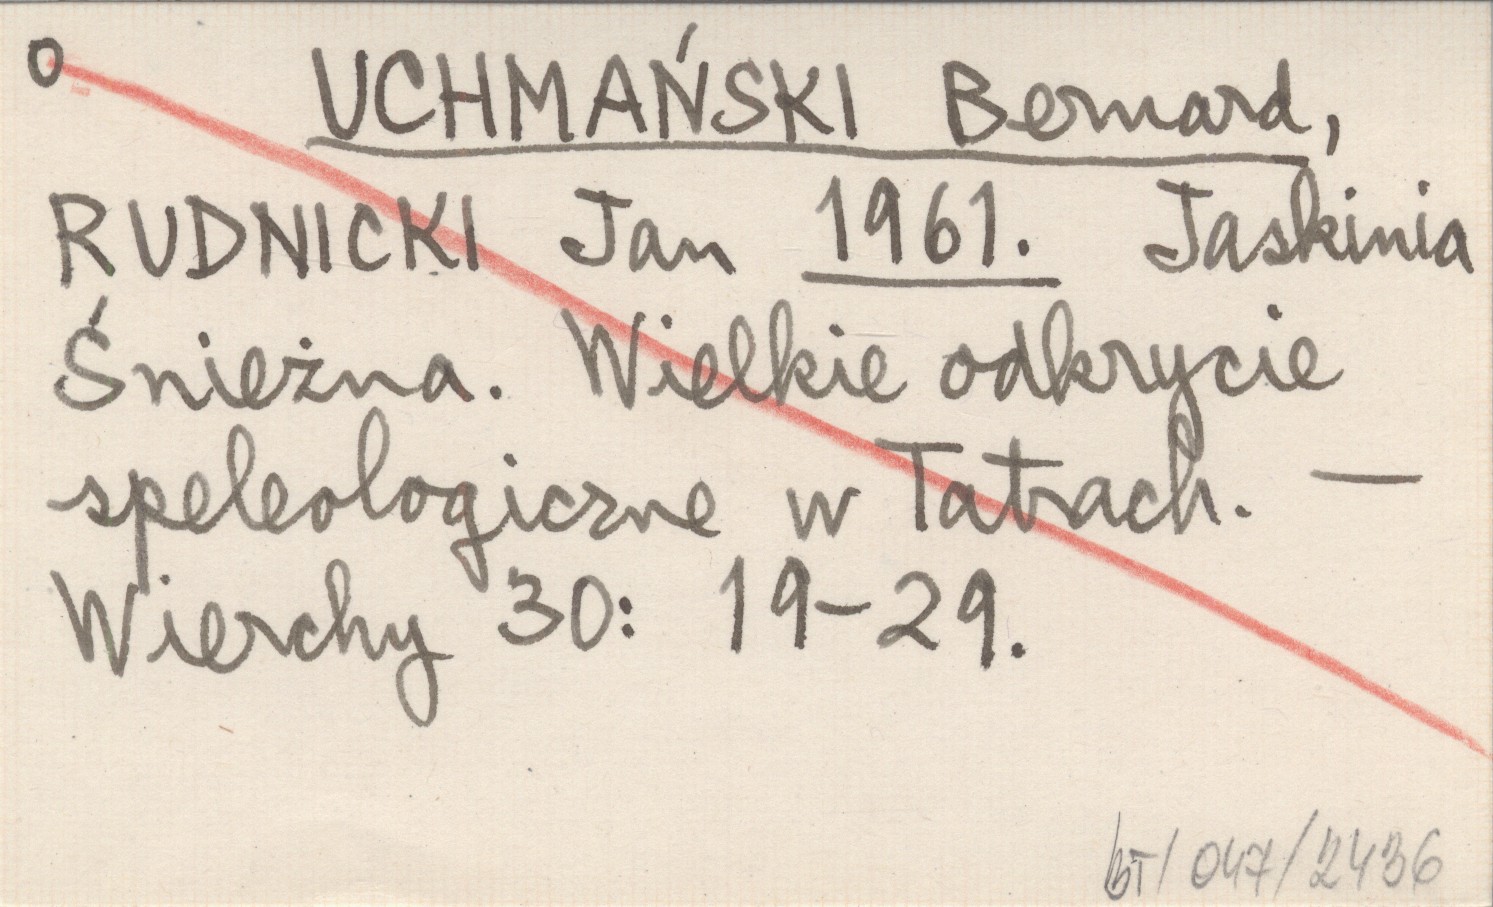 O UCHMAŃSKI Bernard,
RUDNICKI Jan 1961. Jaskinia
Śnieżna. Wielkie odkrycie
speleologiczne w Tatrach. —
Wierchy 30: 19-29.
BT/047/2436